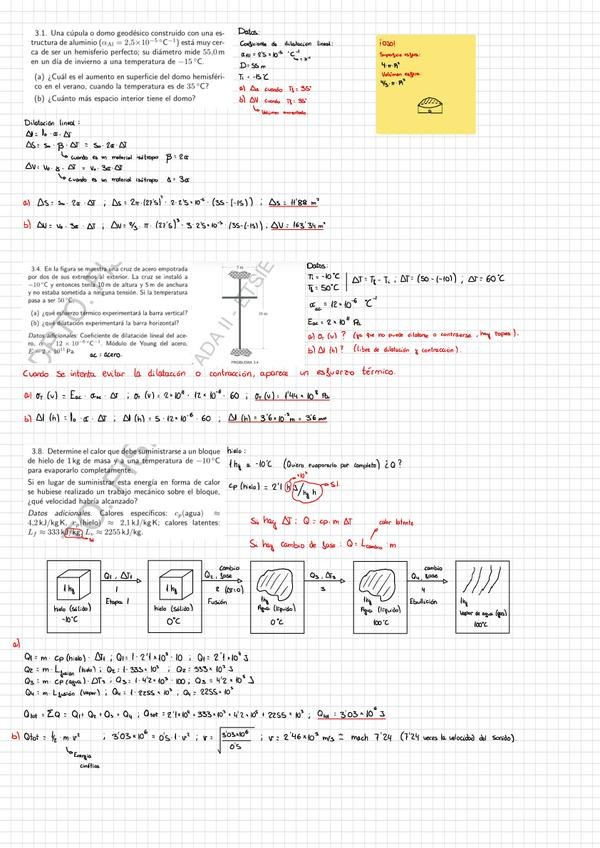 3.1. Una cúpula o domo geodésico construido con una es-
tructura de aluminio (αAl = 2,5×10⁻⁵ °C⁻¹) está muy cer-
ca de ser un hemisferio perfecto; su diámetro mide 55,0 m
en un día de invierno a una temperatura de −15 °C.
(a) ¿Cuál es el aumento en superficie del domo hemisféri-
co en el verano, cuando la temperatura es de 35 °C?
(b) ¿Cuánto más espacio interior tiene el domo?
Datos:
Coeficiente de dilatación lineal:
D = 55 m
Ti = -15°C
a) Δs cuando Tf = 35°
b) ΔV cuando Tf = 35°
Volumen aumentado.
¡OJO!
Superficie esfera:
4·π·R²
Volumen esfera:
4/3·π·R³
Dilatación lineal:
Δl = l₀ · α · ΔT
ΔS = S₀ · β · ΔT = S₀ · 2α · ΔT
cuando es un material isótropo β = 2α
ΔV = V₀ · γ · ΔT = V₀ · 3α · ΔT
cuando es un material isótropo γ = 3α
a) ΔS = S₀ · 2α · ΔT ; ΔS = 2π·(27'5)² · 2·2'5·10⁻⁵ · (35-(-15)) ; ΔS = 11'88 m²
b) ΔV = V₀ · 3α · ΔT ; ΔV = 2/3 · π · (27'5)³ · 3·2'5·10⁻⁵ · (35-(-15)) ; ΔV = 163'34 m³
3.4. En la figura se muestra una cruz de acero empotrada
por dos de sus extremos al exterior. La cruz se instaló a
−10 °C y entonces tenía 10 m de altura y 5 m de anchura
y no estaba sometida a ninguna tensión. Si la temperatura
pasa a ser 50 °C,
(a) ¿qué esfuerzo térmico experimentará la barra vertical?
(b) ¿qué dilatación experimentará la barra horizontal?
Datos adicionales: Coeficiente de dilatación lineal del ace-
ro, α = 12 × 10⁻⁶ °C⁻¹. Módulo de Young del acero,
E = 2 × 10¹¹ Pa.
ac: acero.
10 m
PROBLEMA 3.4
Datos:
Ti = -10°C
Tf = 50°C
ΔT = Tf - Ti ; ΔT = (50 -(-10)) , ΔT = 60°C
αac = 12×10⁻⁶ °C⁻¹
Eac = 2 × 10¹¹ Pa
a) σT (v) ? (ya que no puede dilatarse o contraerse, hay topes).
b) Δl (h) ? (libre de dilatación y contracción).
Cuando se intenta evitar la dilatación o contracción, aparece un esfuerzo térmico.
a) σT (v) = Eac · αac · ΔT ; σT (v) = 2·10¹¹ · 12·10⁻⁶ · 60 ; σT (v) = 1'44 × 10⁸ Pa
b) Δl (h) = l₀ · α · ΔT ; Δl (h) = 5 · 12·10⁻⁶ · 60 ; Δl (h) = 3'6×10⁻³ m = 3'6 mm
3.8. Determine el calor que debe suministrarse a un bloque
de hielo de 1 kg de masa y a una temperatura de −10 °C
para evaporarlo completamente.
Si en lugar de suministrar esta energía en forma de calor
se hubiese realizado un trabajo mecánico sobre el bloque,
¿qué velocidad habría alcanzado?
Datos adicionales. Calores específicos: cp(agua) ≈
4,2 kJ/kg K, cp(hielo) ≈ 2,1 kJ/kg K; calores latentes:
Lf ≈ 333 kJ/kg, Lv ≈ 2255 kJ/kg.
hielo:
1 kg a -10°C (Quiero evaporarlo por completo) ¿Q?
×10³
S.I.
Si hay ΔT : Q = cp·m·ΔT
calor latente
Si hay cambio de fase : Q = Lcambio · m
Q₁, ΔT₁
1
Etapa 1
cambio
Q₂, fase
2 (ΔT=0)
Fusión
Q₃, ΔT₃
3
cambio
Q₄, fase
4
Ebullición
1 kg
hielo (sólido)
-10°C
1 kg
hielo (sólido)
0°C
1 kg
Agua (líquido)
0°C
1 kg
Agua (líquido)
100°C
1 kg
Vapor de agua (gas)
100°C
a)
Q₁ = m · cp (hielo) · ΔT₁ ; Q₁ = 1 · 2'1×10³ · 10 ; Q₁ = 2'1×10⁴ J
Q₂ = m · Lfusión (hielo) ; Q₂ = 1 · 333×10³ ; Q₂ = 333×10³ J
Q₃ = m · cp (agua) · ΔT₃ ; Q₃ = 1·4'2×10³ · 100 ; Q₃ = 4'2×10⁵ J
Q₄ = m·Lfusión (vapor) ; Q₄ = 1·2255×10³ ; Q₄ = 2255×10³
Qtot = ΣQ = Q₁ + Q₂ + Q₃ + Q₄ ; Qtot = 2'1×10⁴ + 333×10³ + 4'2×10⁵ + 2255×10³ ; Qtot = 3'03×10⁶ J
b) Qtot = 1/2 · m · v² ; 3'03×10⁶ = 0'5 · 1 · v² ; v = √(3'03×10⁶/0'5) ; v = 2'46×10³ m/s ≈ mach 7'24 (7'24 veces la velocidad del sonido).
Energía
cinética